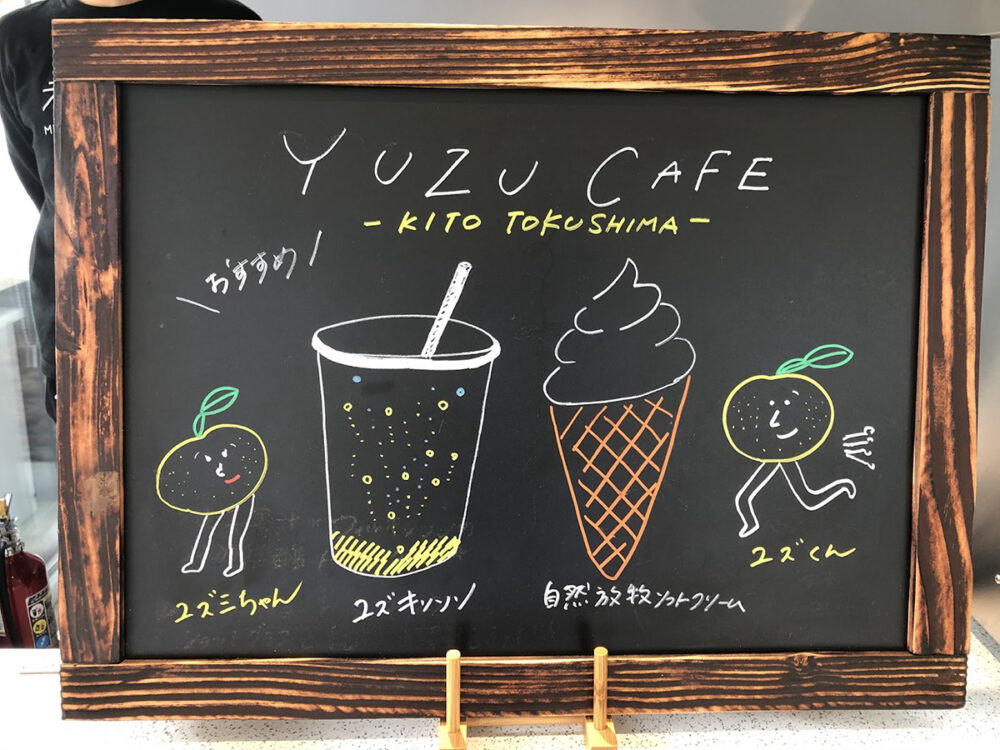 YUZU CAFE
- KITO TOKUSHIMA -
\ おすすめ /
ユズミちゃん
ユズキソソソ
自然放牧ソフトクリーム
ユズくん